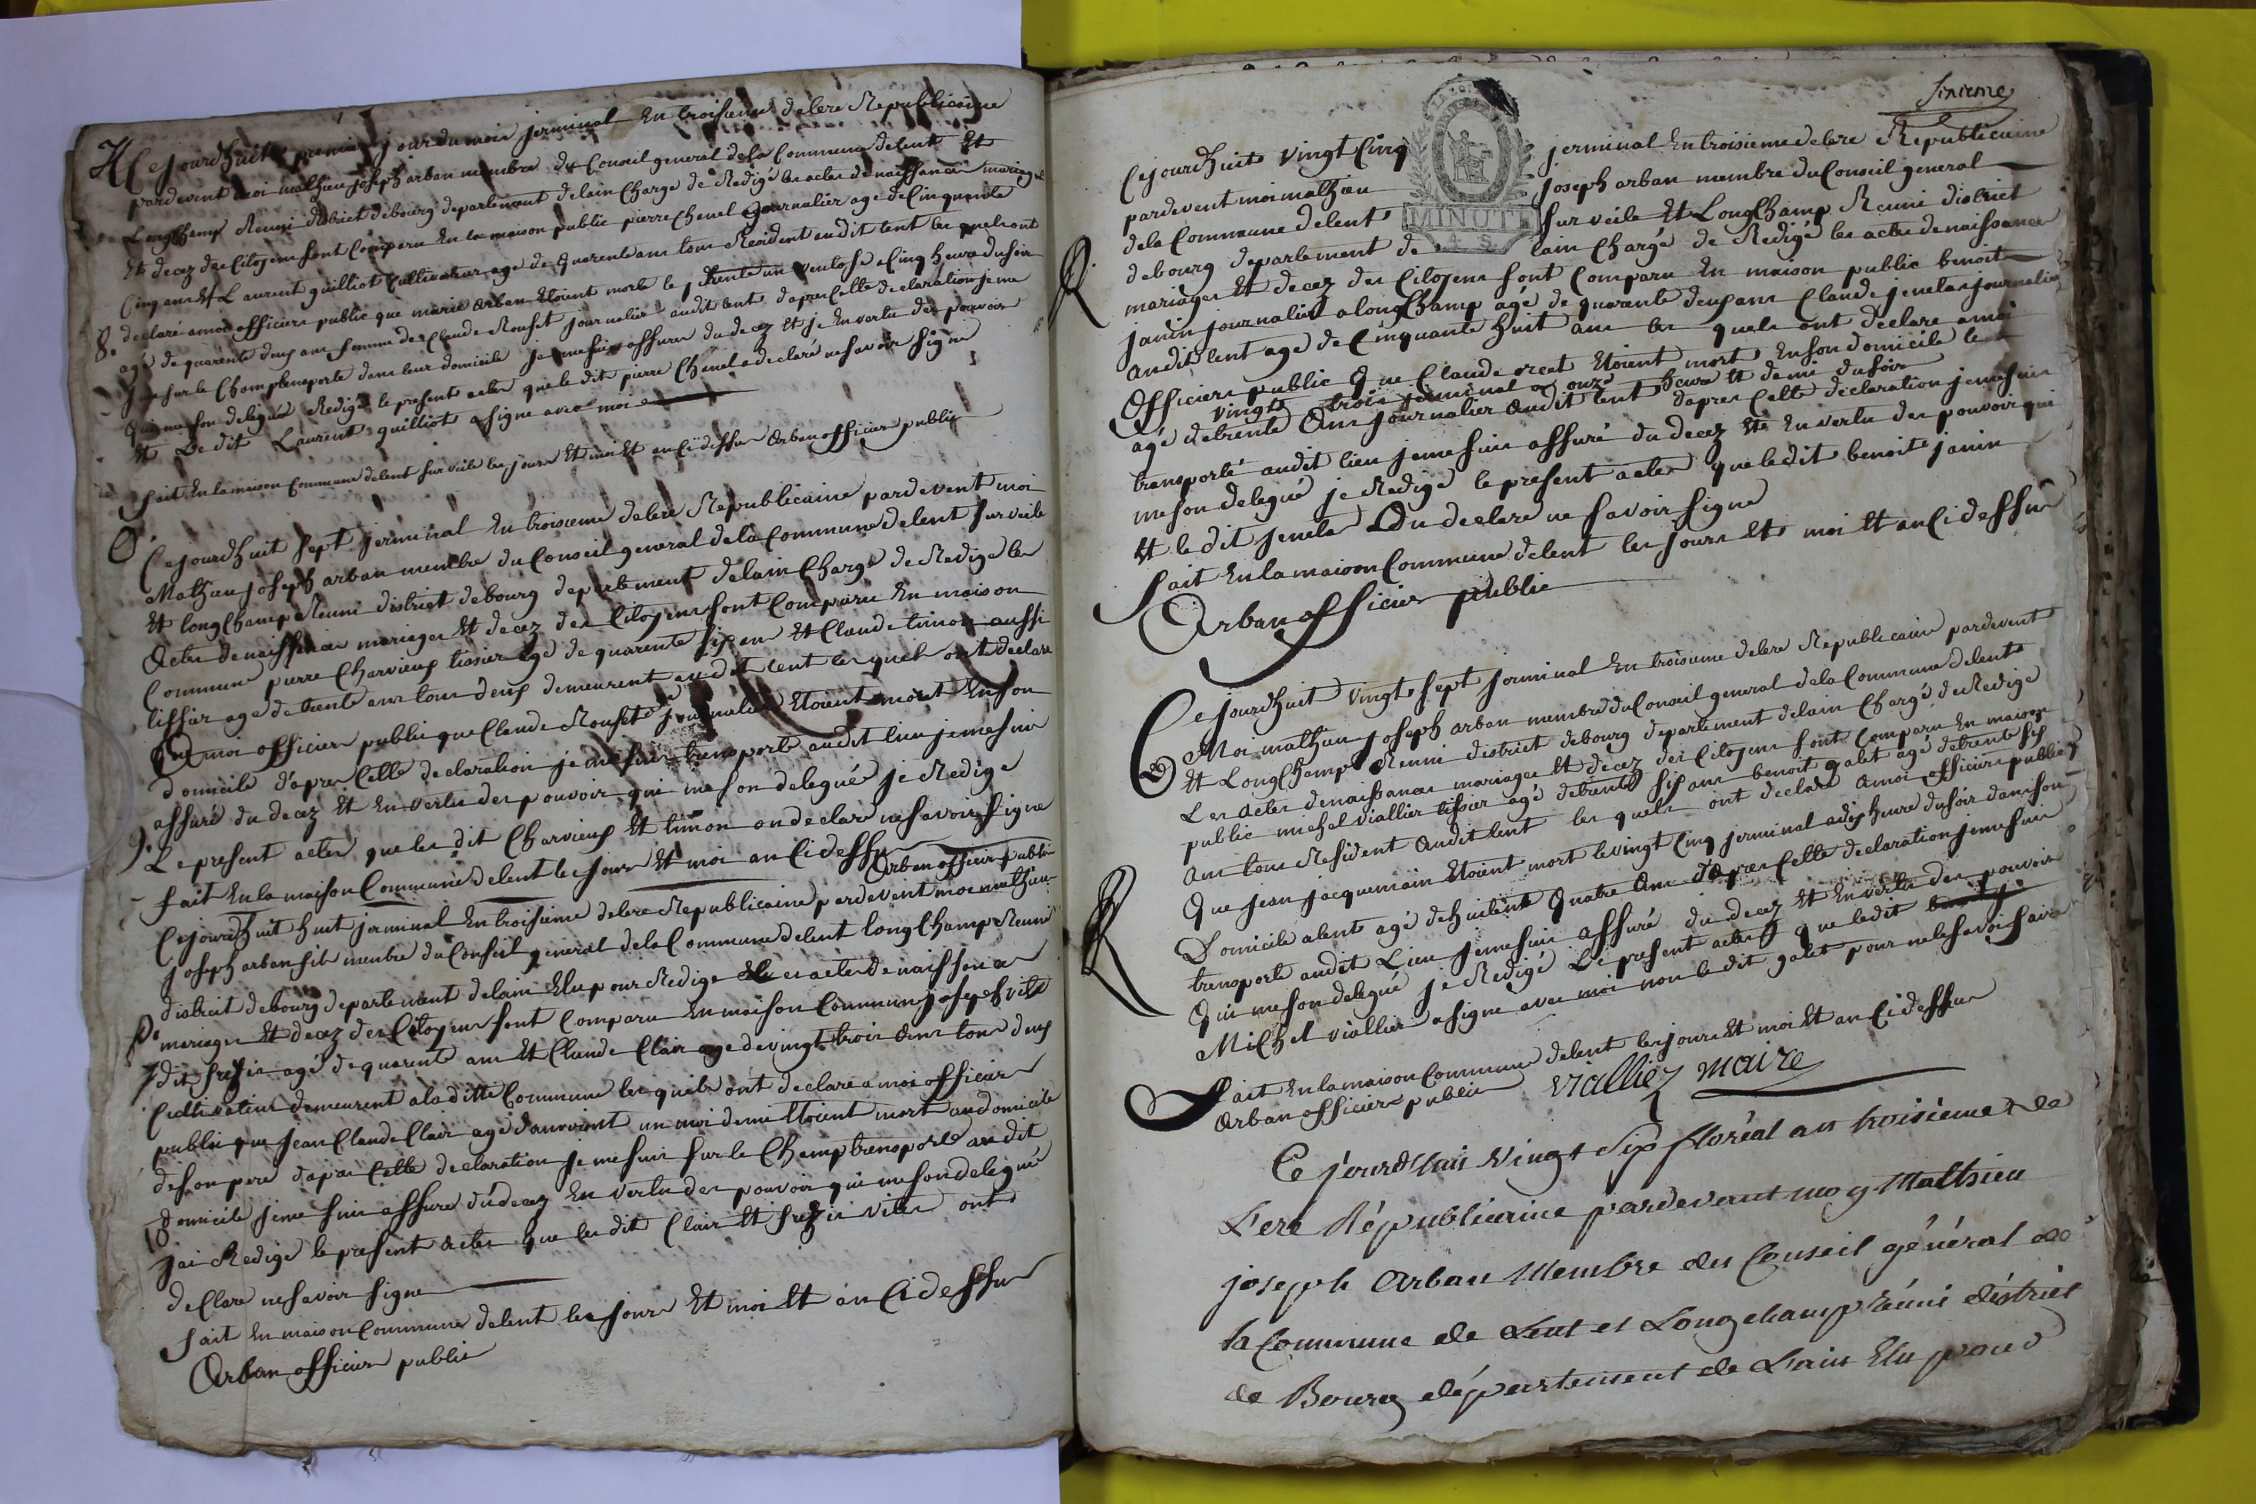 Cejourdhuit premier jour du mois jerminal en troisieme delere Republicaine
pardevent moi mathieu joseph arban membre du Conseil general dela Commune delent Et
Longchamp Reuni district debourg departement delain Charge de Redigé les actes denaissance mariage
Et decez des Citoyens sont Comparu En la maison public pierre Chanel journalier age de Cinquante
Cinq ans Et Laurent guilliot Cultivateur age de quarente ans tous Resident audit lent les quels ont
8. declaré amoi officier public que marie arban Etoient morte le trente un ventose a Cinq heure du soir
agé de quarente deux ans femme de Claude Rouset journalier audit lent dapres Cette declaration je me
suis sur le Champ transporté dans leur domicile je me suis assuré du decez Et je En vertu des pouvoir
qui me son delegué Redigé le present acte que le dit pierre Chanel a declaré ne savoir signé
Et Le dit Laurent guilliot a signe avec moi
fait En la maison Commune delent sur veile les jours Et moi Et an Ci dessu Arban officier public
Cejourdhuit sept jerminal En troisieme delere Republicaine pardevent moi
Mathieu joseph arban membre du Conseil general dela Commune delent sur veile
Et longchamp Reuni district debourg departement delain Charge de Redige les
actes denaissance mariages Et decez des Citoyens sont Comparu En maison
Commune pierre Charvieux tissier age de quarente six an Et Claude timon aussi
tissier age de trente ans tous deux demeurent audit lent les quels ont declaré
a moi officier public que Claude Rousete journalier Etoient mort En son
domicile dapres Cette declaration je me suis transporté audit lieu je me suis
assuré du decez Et En vertu des pouvoir qui me son delegué je Redige
9. Le present actes que les dit Charvieux Et timon on declaré ne savoir signe
fait En la maison Commune delent les jours Et moi an Cidessu
Arban officier public
Cejourdhuit huit jerminal En troisieme delere Republicaine pardevent moi mathieu
joseph arban fils membre du Conseil general dela Commune delent longchamp Reuni
district debourg departement delain Elu pour Redige les actes denaissance
mariages Et decez des Citoyens sont Comparu En maison Commune joseph vite
dit agé de quarente ans Et Claude Clair age devingt trois ans tous deux
Cultivateur demeurent a la ditte Commune les quels ont declaré a moi officier
public que jean Claude Clair agé d'environt un moi demi Etoient mort au domicile
de son pere dapres Cette declaration je me suis sur le Champ transporte au dit
10 domicile je me suis assure du decez En vertu des pouvoir qui me son delegué
jai Redige le present actes que les dit Clair Et vite ont
declare ne savoir signe
fait En maison Commune delent les jours Et moi Et an Cidessu
Arban officier public
sixieme
MINUTE
4 S.
Cejourdhuit vingt Cinq jerminal En troisieme delere Republicaine
pardevent moi mathieu joseph arban membre du Conseil general
dela Commune delent sur veile Et Longchamp Reuni district
debourg departement de lain Chargé de Redigé les actes denaissance
mariages Et decez des Citoyens sont Comparu En maison public benoit
janin journalier a longchamp agé de quarante deux ans Claude jenelas journalier
audit lent age de Cinquante huit ans les quels ont declare amoi
Officier public que Claude Etoient mort En son domicile le
vingt trois jerminal a onze heure Et demi du soir
agé detrente ans journalier audit lent dapres Cette declaration je me suis
transporté audit lieu je me suis assuré du decez Et En vertu des pouvoir qui
me son delegué je Redigé le present actes que le dit benoite janin
Et le dit jenela on declare ne savoir signe
fait En la maison Commune delent les jours Et moi Et an Ci dessu
Arban officier public
Cejourdhuit vingt sept jerminal En troisieme delere Republicaine pardevent
Moi mathieu joseph arban membre du Conseil general dela Commune delent
Et Longchamp Reuni district debourg departement delain Chargé de Redigé
Les actes denaissance mariages Et decez des Citoyens sont Comparu En maison
public michel viallier tissier agé detrente six ans benoit galet agé detrente six
ans tous Resident audit lent les quels ont declaré amoi officier public
Que jean jacquemain Etoient mort le vingt Cinq jerminal a dix heure du soir dans son
Domicile alent agé de huitente quatre ans dapres Cette declaration je me suis
transporte audit Lieu je me suis assuré du decez Et En vertu des pouvoir
Qui me son delegué je Redigé Le present actes que le dit
Michel viallier a signe avec moi non le dit galet pour ne le savoir faire
fait En la maison Commune delent les jours Et moi Et an Cidessu
Arban officier public vialliez maire
Ce jourd'hui vingt six floréal an troisième de
L'ere Républicaine pardevant moy Mathieu
joseph Arban Membre du Conseil général de
la Commune de Lent et Longchamp réuni district
de Bourg département de L'ain Elu pour